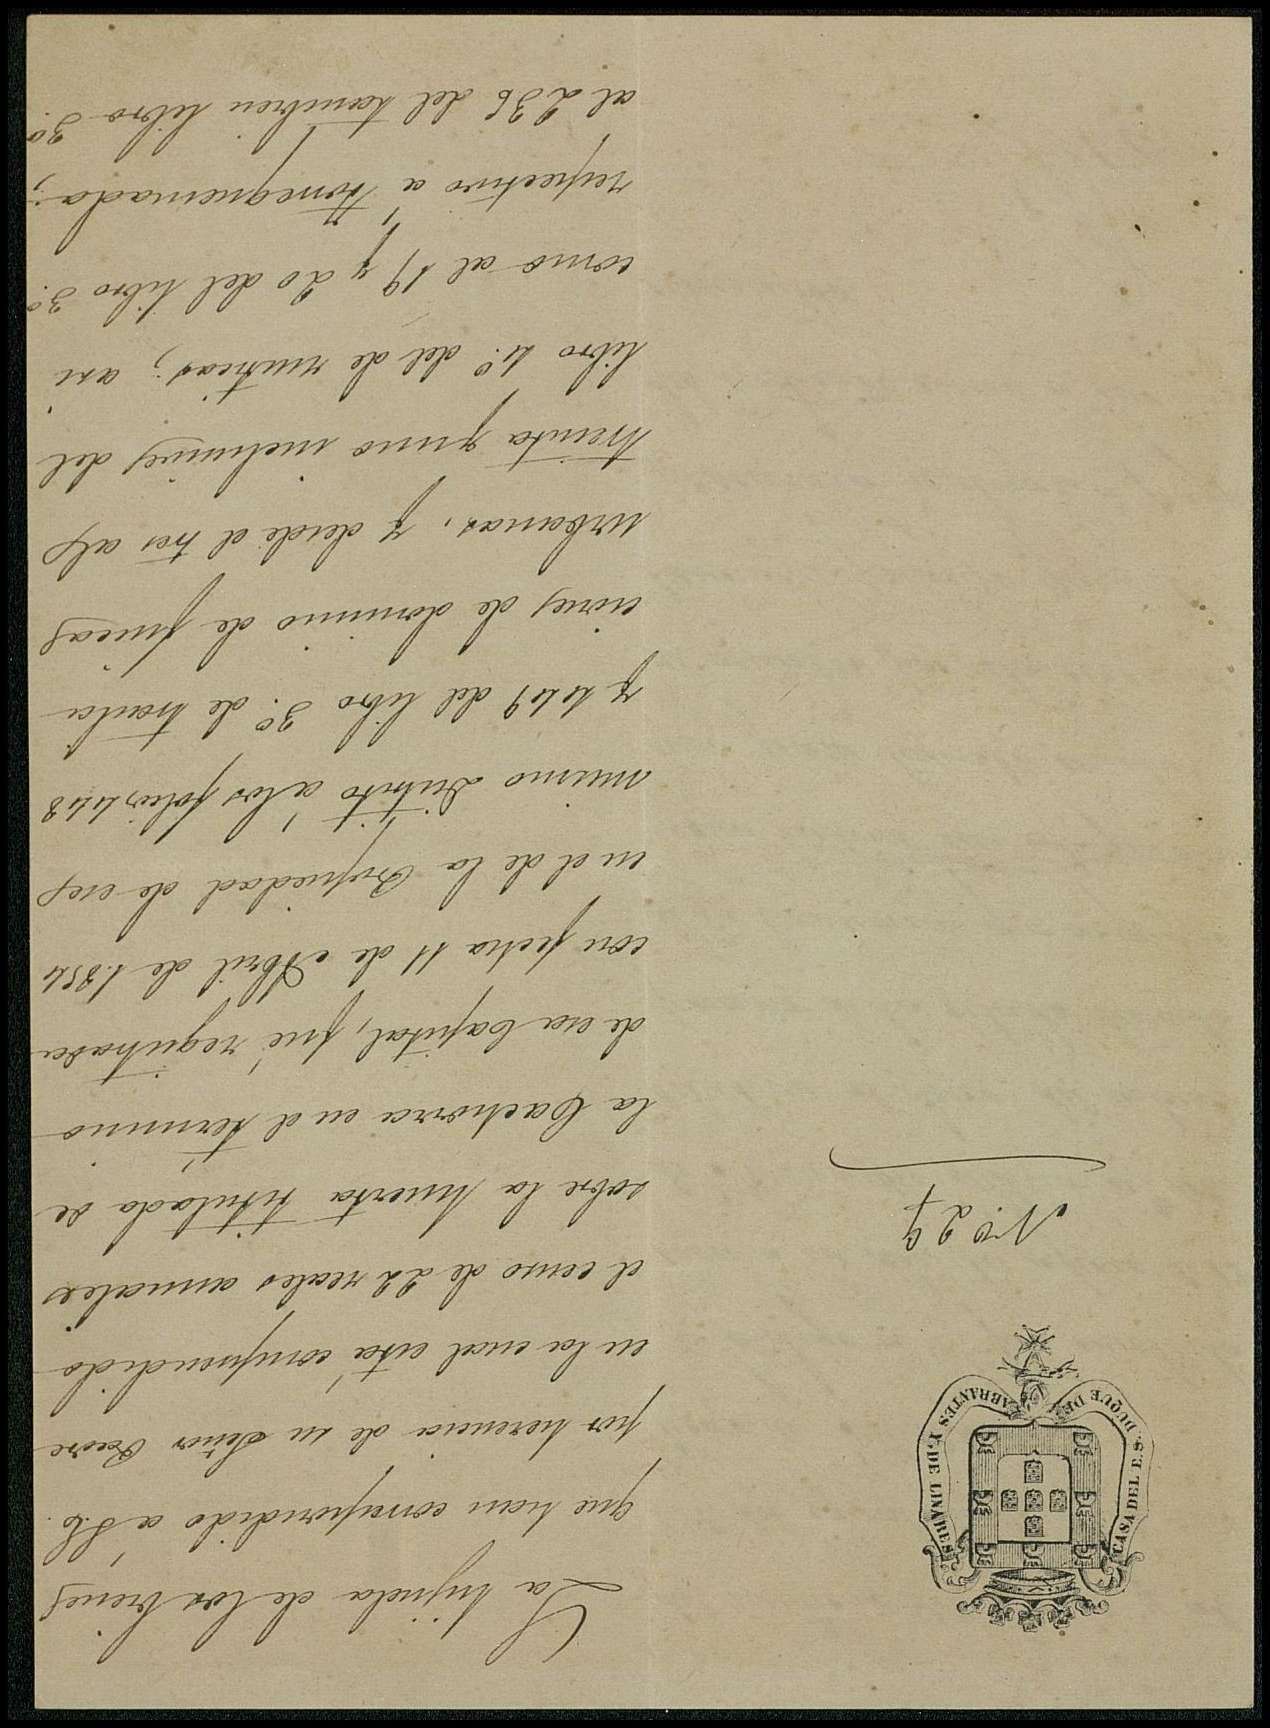 CASA DEL E.S. DUQUE DE ABRANTES Y DE LINARES
No. 29
La hijuela de los bienes
que han correspondido á S.E.
por herencia de su Señor Padre
en la cual está comprendido
el censo de 22 reales anuales
sobre la huerta titulada de
la Cachorra en el termino
de esa Capital, fué registrada
con fecha 11 de Abril de 1.854
en el de la Propiedad de ese
mismo distrito á los folios 448
y 449 del libro 3º. de trasla
ciones de dominio de fincas
urbanas, y desde el tres al
treinta y uno inclusives del
libro 4º. del de rusticas; asi
como al 19 y 20 del libro 3º.
respectivo á Torrequemada;
al 236 del tambien libro 3º.